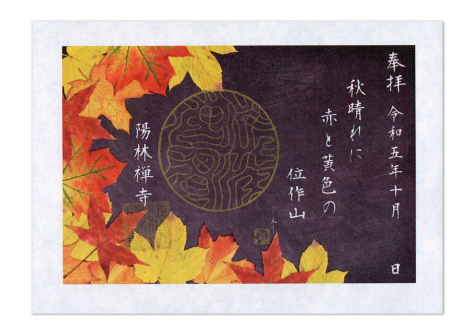 奉拝 令和五年十月 日
秋晴れに
赤と黄色の
位作山
陽林禅寺